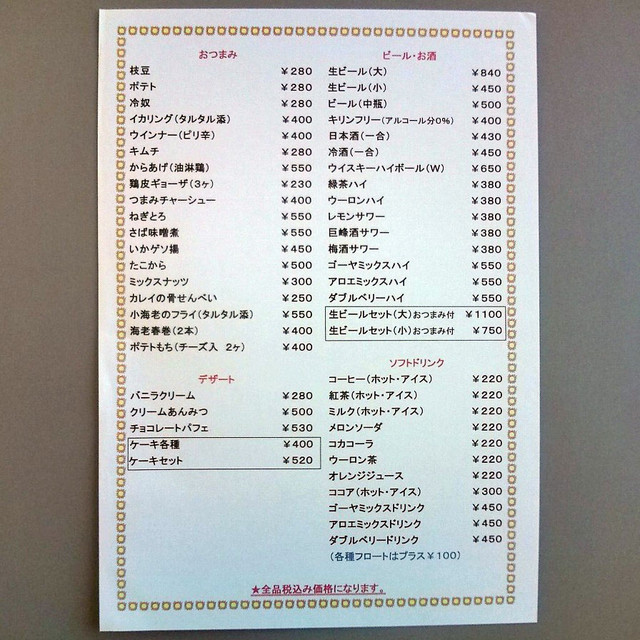 おつまみ
枝豆 ¥280
ポテト ¥280
冷奴 ¥280
イカリング(タルタル添) ¥400
ウインナー(ピリ辛) ¥400
キムチ ¥280
からあげ(油淋鶏) ¥550
鶏皮ギョーザ(3ヶ) ¥230
つまみチャーシュー ¥400
ねぎとろ ¥550
さば味噌煮 ¥550
いかゲソ揚 ¥450
たこから ¥500
ミックスナッツ ¥300
カレイの骨せんべい ¥250
小海老のフライ(タルタル添) ¥550
海老春巻(2本) ¥400
ポテトもち(チーズ入 2ヶ) ¥400
デザート
バニラクリーム ¥280
クリームあんみつ ¥500
チョコレートパフェ ¥530
ケーキ各種 ¥400
ケーキセット ¥520
ビール・お酒
生ビール(大) ¥840
生ビール(小) ¥450
ビール(中瓶) ¥500
キリンフリー(アルコール分0%) ¥400
日本酒(一合) ¥430
冷酒(一合) ¥450
ウイスキーハイボール(W) ¥650
緑茶ハイ ¥380
ウーロンハイ ¥380
レモンサワー ¥380
巨峰酒サワー ¥380
梅酒サワー ¥380
ゴーヤミックスハイ ¥550
アロエミックスハイ ¥550
ダブルベリーハイ ¥550
生ビールセット(大)おつまみ付 ¥1100
生ビールセット(小)おつまみ付 ¥750
ソフトドリンク
コーヒー(ホット・アイス) ¥220
紅茶(ホット・アイス) ¥220
ミルク(ホット・アイス) ¥220
メロンソーダ ¥220
コカコーラ ¥220
ウーロン茶 ¥220
オレンジジュース ¥220
ココア(ホット・アイス) ¥300
ゴーヤミックスドリンク ¥450
アロエミックスドリンク ¥450
ダブルベリードリンク ¥450
(各種フロートはプラス¥100)
★全品税込み価格になります。